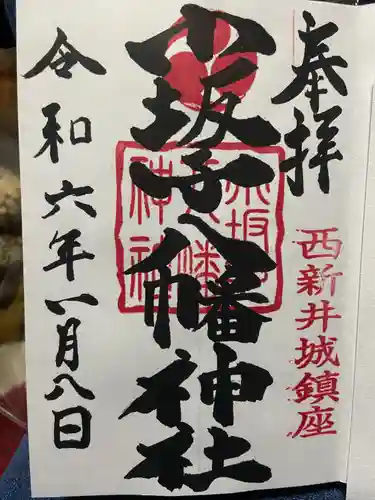 奉拝
西新井城鎮座
小坂子八幡神社
令和六年一月八日